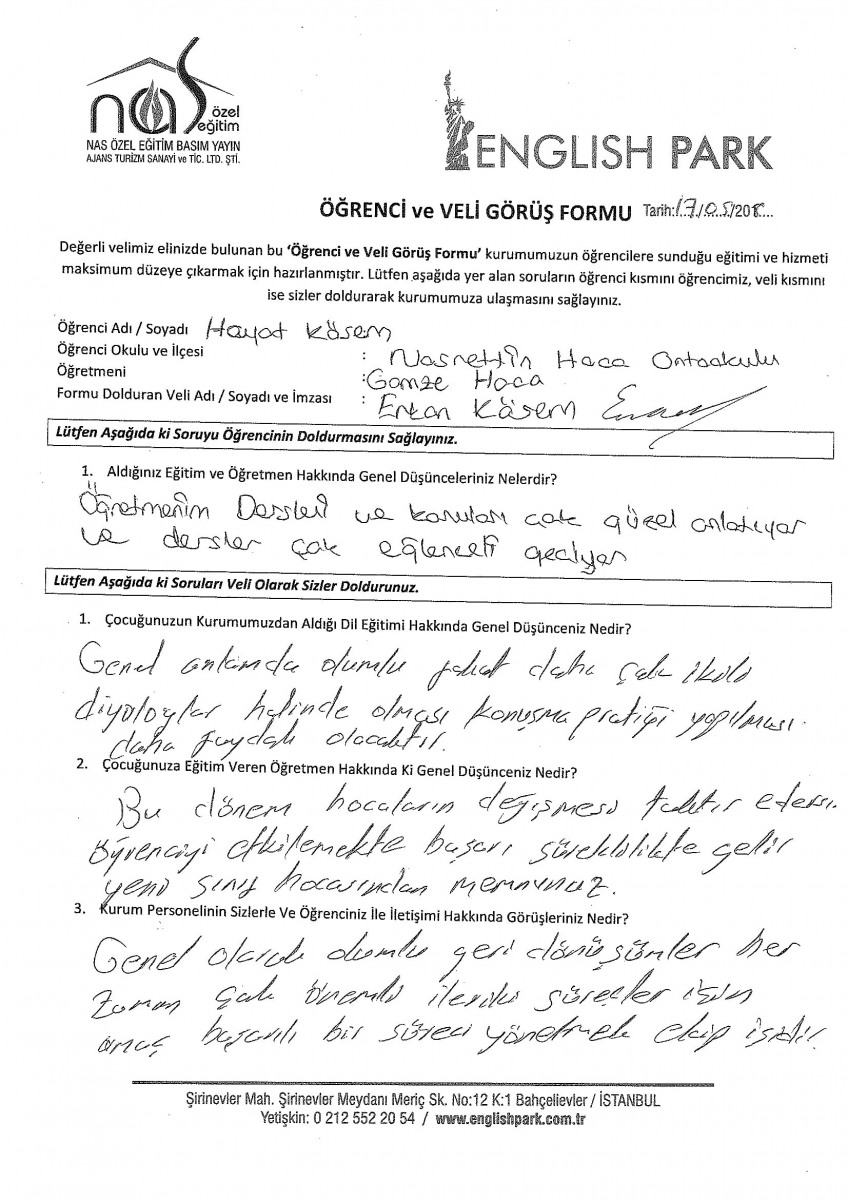 nas özel eğitim
NAS ÖZEL EĞİTİM BASIM YAYIN
AJANS TURİZM SANAYİ ve TİC. LTD. ŞTİ.
ENGLISH PARK
ÖĞRENCİ ve VELİ GÖRÜŞ FORMU Tarih:17/05/201
Değerli velimiz elinizde bulunan bu 'Öğrenci ve Veli Görüş Formu' kurumumuzun öğrencilere sunduğu eğitimi ve hizmeti
maksimum düzeye çıkarmak için hazırlanmıştır. Lütfen aşağıda yer alan soruların öğrenci kısmını öğrencimiz, veli kısmını
ise sizler doldurarak kurumumuza ulaşmasını sağlayınız.
Öğrenci Adı / Soyadı Hayat Kösem
Öğrenci Okulu ve İlçesi : Nasrettin Hoca Ortaokulu
Öğretmeni : Gamze Hoca
Formu Dolduran Veli Adı / Soyadı ve İmzası : Erkan Kösem
Lütfen Aşağıda ki Soruyu Öğrencinin Doldurmasını Sağlayınız.
1. Aldığınız Eğitim ve Öğretmen Hakkında Genel Düşünceleriniz Nelerdir?
Öğretmenim Dersleri ve konuları çok güzel anlatıyor
ve dersler çok eğlenceli geçiyor
Lütfen Aşağıda ki Soruları Veli Olarak Sizler Doldurunuz.
1. Çocuğunuzun Kurumumuzdan Aldığı Dil Eğitimi Hakkında Genel Düşünceniz Nedir?
Genel anlamda olumlu fakat daha çok ikili
diyologlar halinde olması konuşma pratiği yapılması
daha faydalı olacaktır.
2. Çocuğunuza Eğitim Veren Öğretmen Hakkında Ki Genel Düşünceniz Nedir?
Bu dönem hocaların değişmesi taktir edersi.
öğrenciyi etkilemekte başarı süreklilikte gelir
yeni sınıf hocasından memnunuz.
3. Kurum Personelinin Sizlerle Ve Öğrenciniz İle İletişimi Hakkında Görüşleriniz Nedir?
Genel olarak olumlu geri dönüşümler her
zaman çok önemli ileriki süreçler için
amaç başarılı bir süreci yönetmek ekip işidir.
Şirinevler Mah. Şirinevler Meydanı Meriç Sk. No:12 K:1 Bahçelievler / İSTANBUL
Yetişkin: 0 212 552 20 54 / www.englishpark.com.tr